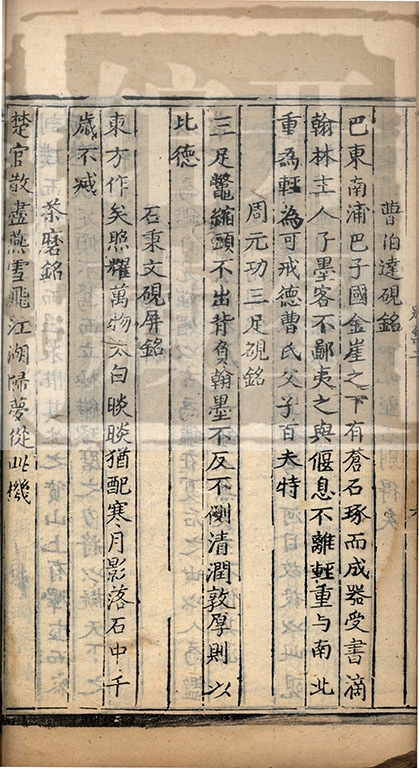 曹伯達硯銘
巴東南浦巴子國金崖之下有蒼石琢而成器受書滴
翰林主人子墨客不鄙夷之與偃息不離輕重与南北
重為輕為可戒德曹氏父子百夫特
周元功三足硯銘
三足鼈縮頭不出背負翰墨不反不側清潤敦厚則以
比德
石秉文硯屏銘
東方作矣照耀萬物太白晱晱猶配寒月影落石中千
歲不滅
茶磨銘
楚官散盡燕雪飛江湖歸夢從此機